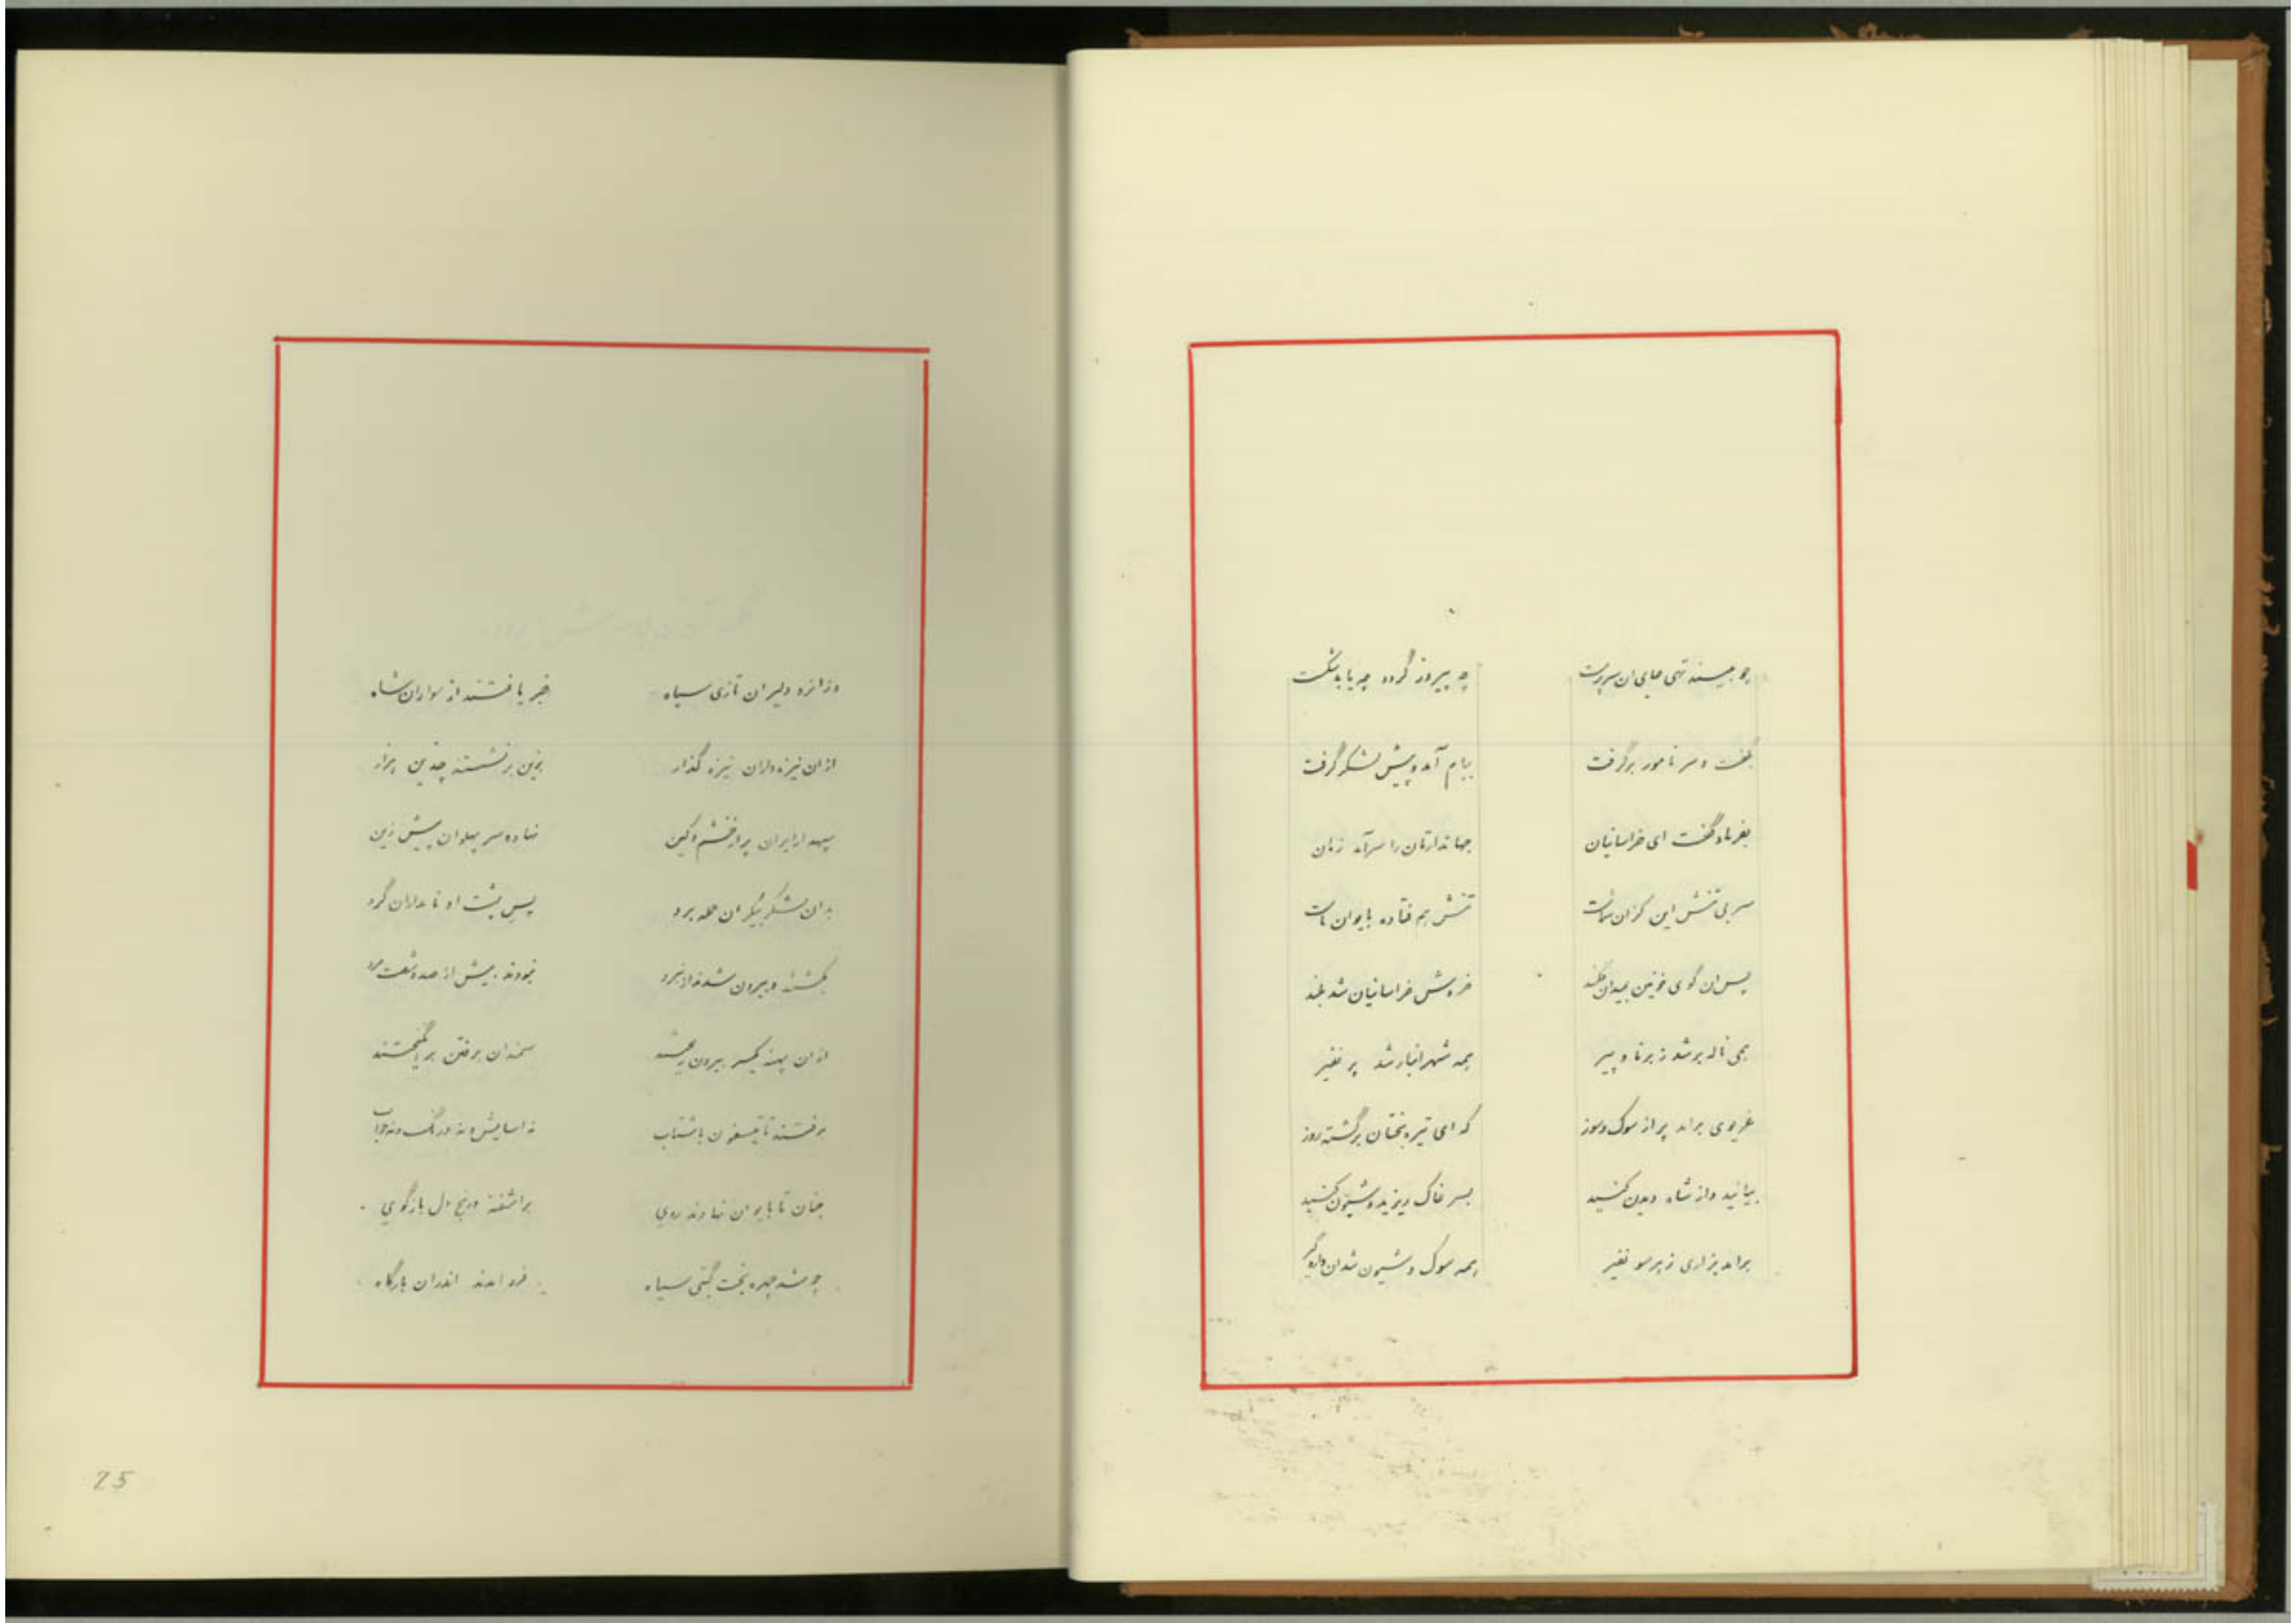 چو بینند تهی جای ان سرپرست چه پیروز گردد چه یابد شکست
بگفت و سر نامور برگرفت ببام آمد و پیش لشکر گرفت
بفریاد گفت ای خراسانیان جهاندارتان را سرآمد زمان
سر بی تنش این کزان شماست تنش هم فتاده بایوان ماست
پس ان گوی خونین بمیدان فکند خروش خراسانیان شد بلند
همی ناله برشد ز برنا و پیر همه شهر انبار شد پر نفیر
غریوی برامد پر از سوک و سوز که ای تیره بختان برگشته روز
بیائید و از شاه دیدن کنید بسر خاک ریزید و شیون کنید
برامد بزاری ز هر سو نفیر همه سوک و شیون شد ان دار و گیر
وزانرو دلیران تازی سپاه خبر یافتند از سواران شاه
ازان نیزه داران نیزه گذار بزین برنشستند چندین هزار
سپهدار ایران پر از خشم و کین نهاده سر پهلوان پیش زین
بدان لشکر بیکران حمله برد پس پشت او نامداران گرد
بکشتند و بیرون شدند از نبرد نبودند بیش از صد و شصت مرد
ازان پهنه یکسر بیرون سمندان برفتن برانگیختند
برفتند تا تیسفون باشتاب نه اسایش و نه درنگ و نه خواب
چنان تا بایوان نهادند روی براشفته و رنج دل بازگوی
چو شد چهره بخت گیتی سیاه فرود امدند اندران بارگاه
25